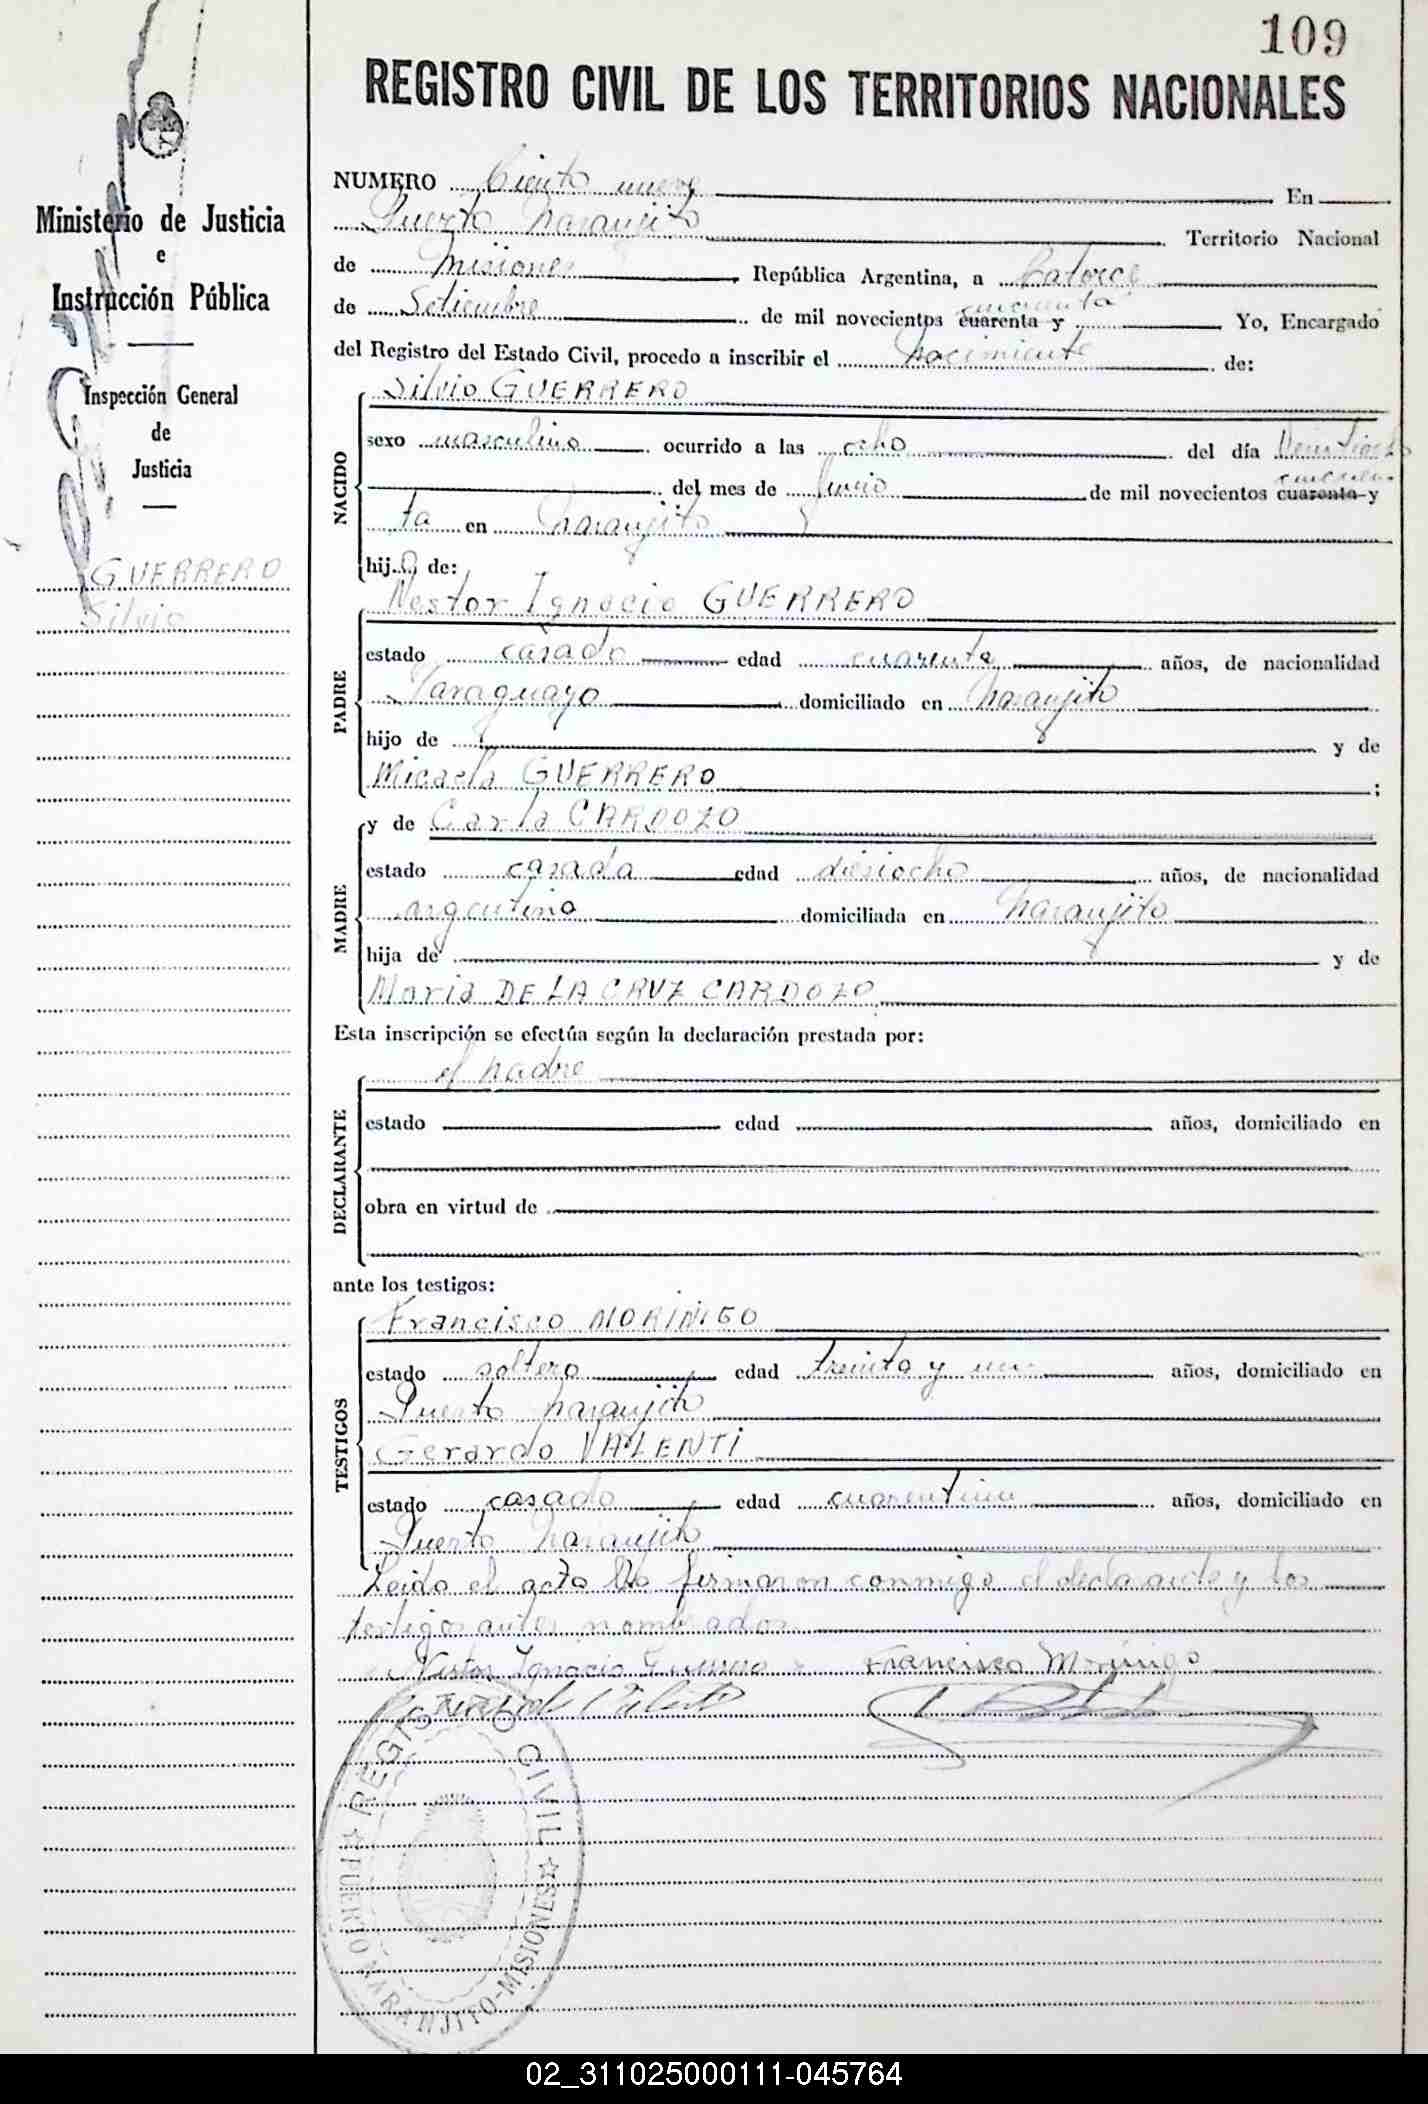 109
REGISTRO CIVIL DE LOS TERRITORIOS NACIONALES
Ministerio de Justicia
e
Instrucción Pública
Inspección General
de
Justicia
GUERRERO
Silvio
NUMERO Ciento nueve En
Puerto Naranjito Territorio Nacional
de Misiones, República Argentina, a Catorce
cincuenta
de Setiembre de mil novecientos cuarenta y Yo, Encargado
del Registro del Estado Civil, procedo a inscribir el nacimiento de:
NACIDO
Silvio GUERRERO
sexo masculino ocurrido a las ocho del día Veintiocho
cincuen
del mes de Junio de mil novecientos cuarenta y
ta en Naranjito
hijo de:
PADRE
Nestor Ignacio GUERRERO
estado casado edad cuarenta años, de nacionalidad
Paraguayo domiciliado en Naranjito
hijo de y de
Micaela GUERRERO ;
MADRE
y de Carla CARDOZO
estado casada edad diesiocho años, de nacionalidad
argentina domiciliada en Naranjito
hija de y de
Maria DE LA CRUZ CARDOZO
Esta inscripción se efectúa según la declaración prestada por:
DECLARANTE
el padre
estado edad años, domiciliado en
obra en virtud de
ante los testigos:
TESTIGOS
Francisco MORINIGO
estado soltero edad treinta y un años, domiciliado en
Puerto Naranjito
Gerardo VALENTI
estado casado edad años, domiciliado en
Puerto Naranjito
Leida el acta la firmaron conmigo el declarante y los
testigos antes nombrados
Nestor Ignacio Guerrero Francisco Morinigo
REGISTRO CIVIL
PUERTO NARANJITO-MISIONES
02_311025000111-045764